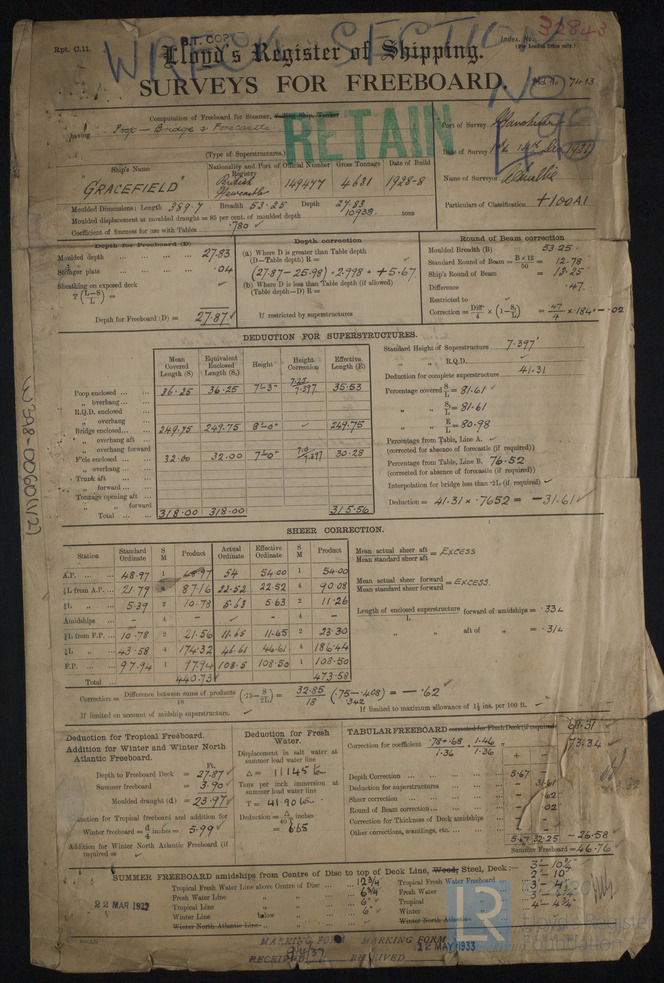 B.T. COPY
WRECK SECTION
Rpt. C.11.
Index. No. 32843
(For London Office only.)
Lloyd's Register of Shipping.
SURVEYS FOR FREEBOARD
No. 7413
RETAIN
Computation of Freeboard for Steamer, Sailing Ship, Tanker
having Poop - Bridge & Forecastle
(Type of Superstructures.)
Port of Survey Manchester
Date of Survey
Name of Surveyor
Particulars of Classification +100A1
Ship's Name
Nationality and Port of Registry
Official Number
Gross Tonnage
Date of Build
"GRACEFIELD"
British
Newcastle
149477
4631
1928-8
Moulded Dimensions: Length 389.7 Breadth 53.25 Depth 27.83
Moulded displacement at moulded draught = 85 per cent. of moulded depth 10938 tons
Coefficient of fineness for use with Tables .780
Depth for Freeboard (D)
Moulded depth 27.83
Stringer plate .04
Sheathing on exposed deck
T (L-S/L) =
Depth for Freeboard (D) = 27.87
Depth correction
(a) Where D is greater than Table depth
(D—Table depth) R =
(27.87-25.98) 2.998 = +5.67
(b) Where D is less than Table depth (if allowed)
(Table depth—D) R =
If restricted by superstructures
Round of Beam correction
Moulded Breadth (B) 53.25
Standard Round of Beam = B×12/50 = 12.78
Ship's Round of Beam = 12.25
Difference .47
Restricted to
Correction = Diff/4 × (1-S/L) = .47/4 × .184 = -.02
DEDUCTION FOR SUPERSTRUCTURES.
Mean Covered Length (S)
Equivalent Enclosed Length (S₁)
Height
Height Correction
Effective Length (E)
Poop enclosed 36.25 36.25 7'-3" 7.25/7.397 35.53
" overhang
R.Q.D. enclosed
" overhang
Bridge enclosed 249.75 249.75 8'-0" 249.75
" overhang aft
" overhang forward
F'cle enclosed 32.00 32.00 7'-0" 7.0/7.397 30.28
" overhang
Trunk aft
" forward
Tonnage opening aft
" " forward
Total 318.00 318.00 315.56
Standard Height of Superstructure 7.397'
" " R.Q.D.
Deduction for complete superstructure 41.31
Percentage covered S/L = 81.61
" " S₁/L = 81.61
" " E/L = 80.98
Percentage from Table, Line A.
(corrected for absence of forecastle (if required))
Percentage from Table, Line B. 76.52
(corrected for absence of forecastle (if required))
Interpolation for bridge less than ·2L (if required)
Deduction = 41.31 × .7652 = -31.61
W398-0060(12)
SHEER CORRECTION.
Station
Standard Ordinate
S M
Product
Actual Ordinate
Effective Ordinate
S M
Product
A.P. 48.97 1 48.97 54 54.00 1 54.00
⅙L from A.P. 21.79 4 87.16 22.52 22.52 4 90.08
⅓L " 5.39 2 10.78 5.63 5.63 2 11.26
Amidships - 4 - - - 4 -
⅓L from F.P. 10.78 2 21.56 11.65 11.65 2 23.30
⅙L " 43.58 4 174.32 46.61 46.61 4 186.44
F.P. 97.94 1 97.94 108.5 108.50 1 108.50
Total 440.73 473.58
Mean actual sheer aft / Mean standard sheer aft = EXCESS
Mean actual sheer forward / Mean standard sheer forward = EXCESS.
Length of enclosed superstructure / L forward of amidships = .33L
" aft of " = .31L
Correction = Difference between sums of products/18 (·75-S/2L) = 32.85/18 (.75-.408) = -.62
.342
If limited on account of midship superstructure.
If limited to maximum allowance of 1½ ins. per 100 ft.
Deduction for Tropical Freeboard.
Addition for Winter and Winter North Atlantic Freeboard.
Ft.
Depth to Freeboard Deck = 27.87
Summer freeboard = 3.90
Moulded draught (d) = 23.97
Deduction for Tropical freeboard and addition for
Winter freeboard = d/4 inches = 5.99
Addition for Winter North Atlantic Freeboard (if required) =
Deduction for Fresh Water.
Displacement in salt water at summer load water line
Δ = 11145
Tons per inch immersion at summer load water line
T = 41.90
Deduction = Δ/40T inches
= 6.65
TABULAR FREEBOARD corrected for Flush Deck (if required)
Correction for coefficient .78+.68/1.36 1.46/1.36 =
73.34
+ -
Depth Correction 5.67
Deduction for superstructures 31.61
Sheer correction .62
Round of Beam correction .02
Correction for Thickness of Deck amidships
Other corrections, scantlings, etc.
5.67 32.25 -26.58
Summer Freeboard = 46.76
SUMMER FREEBOARD amidships from Centre of Disc to top of Deck Line, Wood, Steel, Deck:— 3'-10¾"
Tropical Fresh Water Line above Centre of Disc 12¾"
Fresh Water Line " " 6¾"
Tropical Line " " 6"
Winter Line below " 6"
Winter North Atlantic Line " "
Tropical Fresh Water Freeboard 2'-10"
Fresh Water "
Tropical "
Winter " 4'-4¾"
Winter North Atlantic "
22 MAR 1932
MARKING FORM
RECEIVED
MARKING FORM
RECEIVED
12 MAY 1933
LR
Lloyd's Register
Foundation